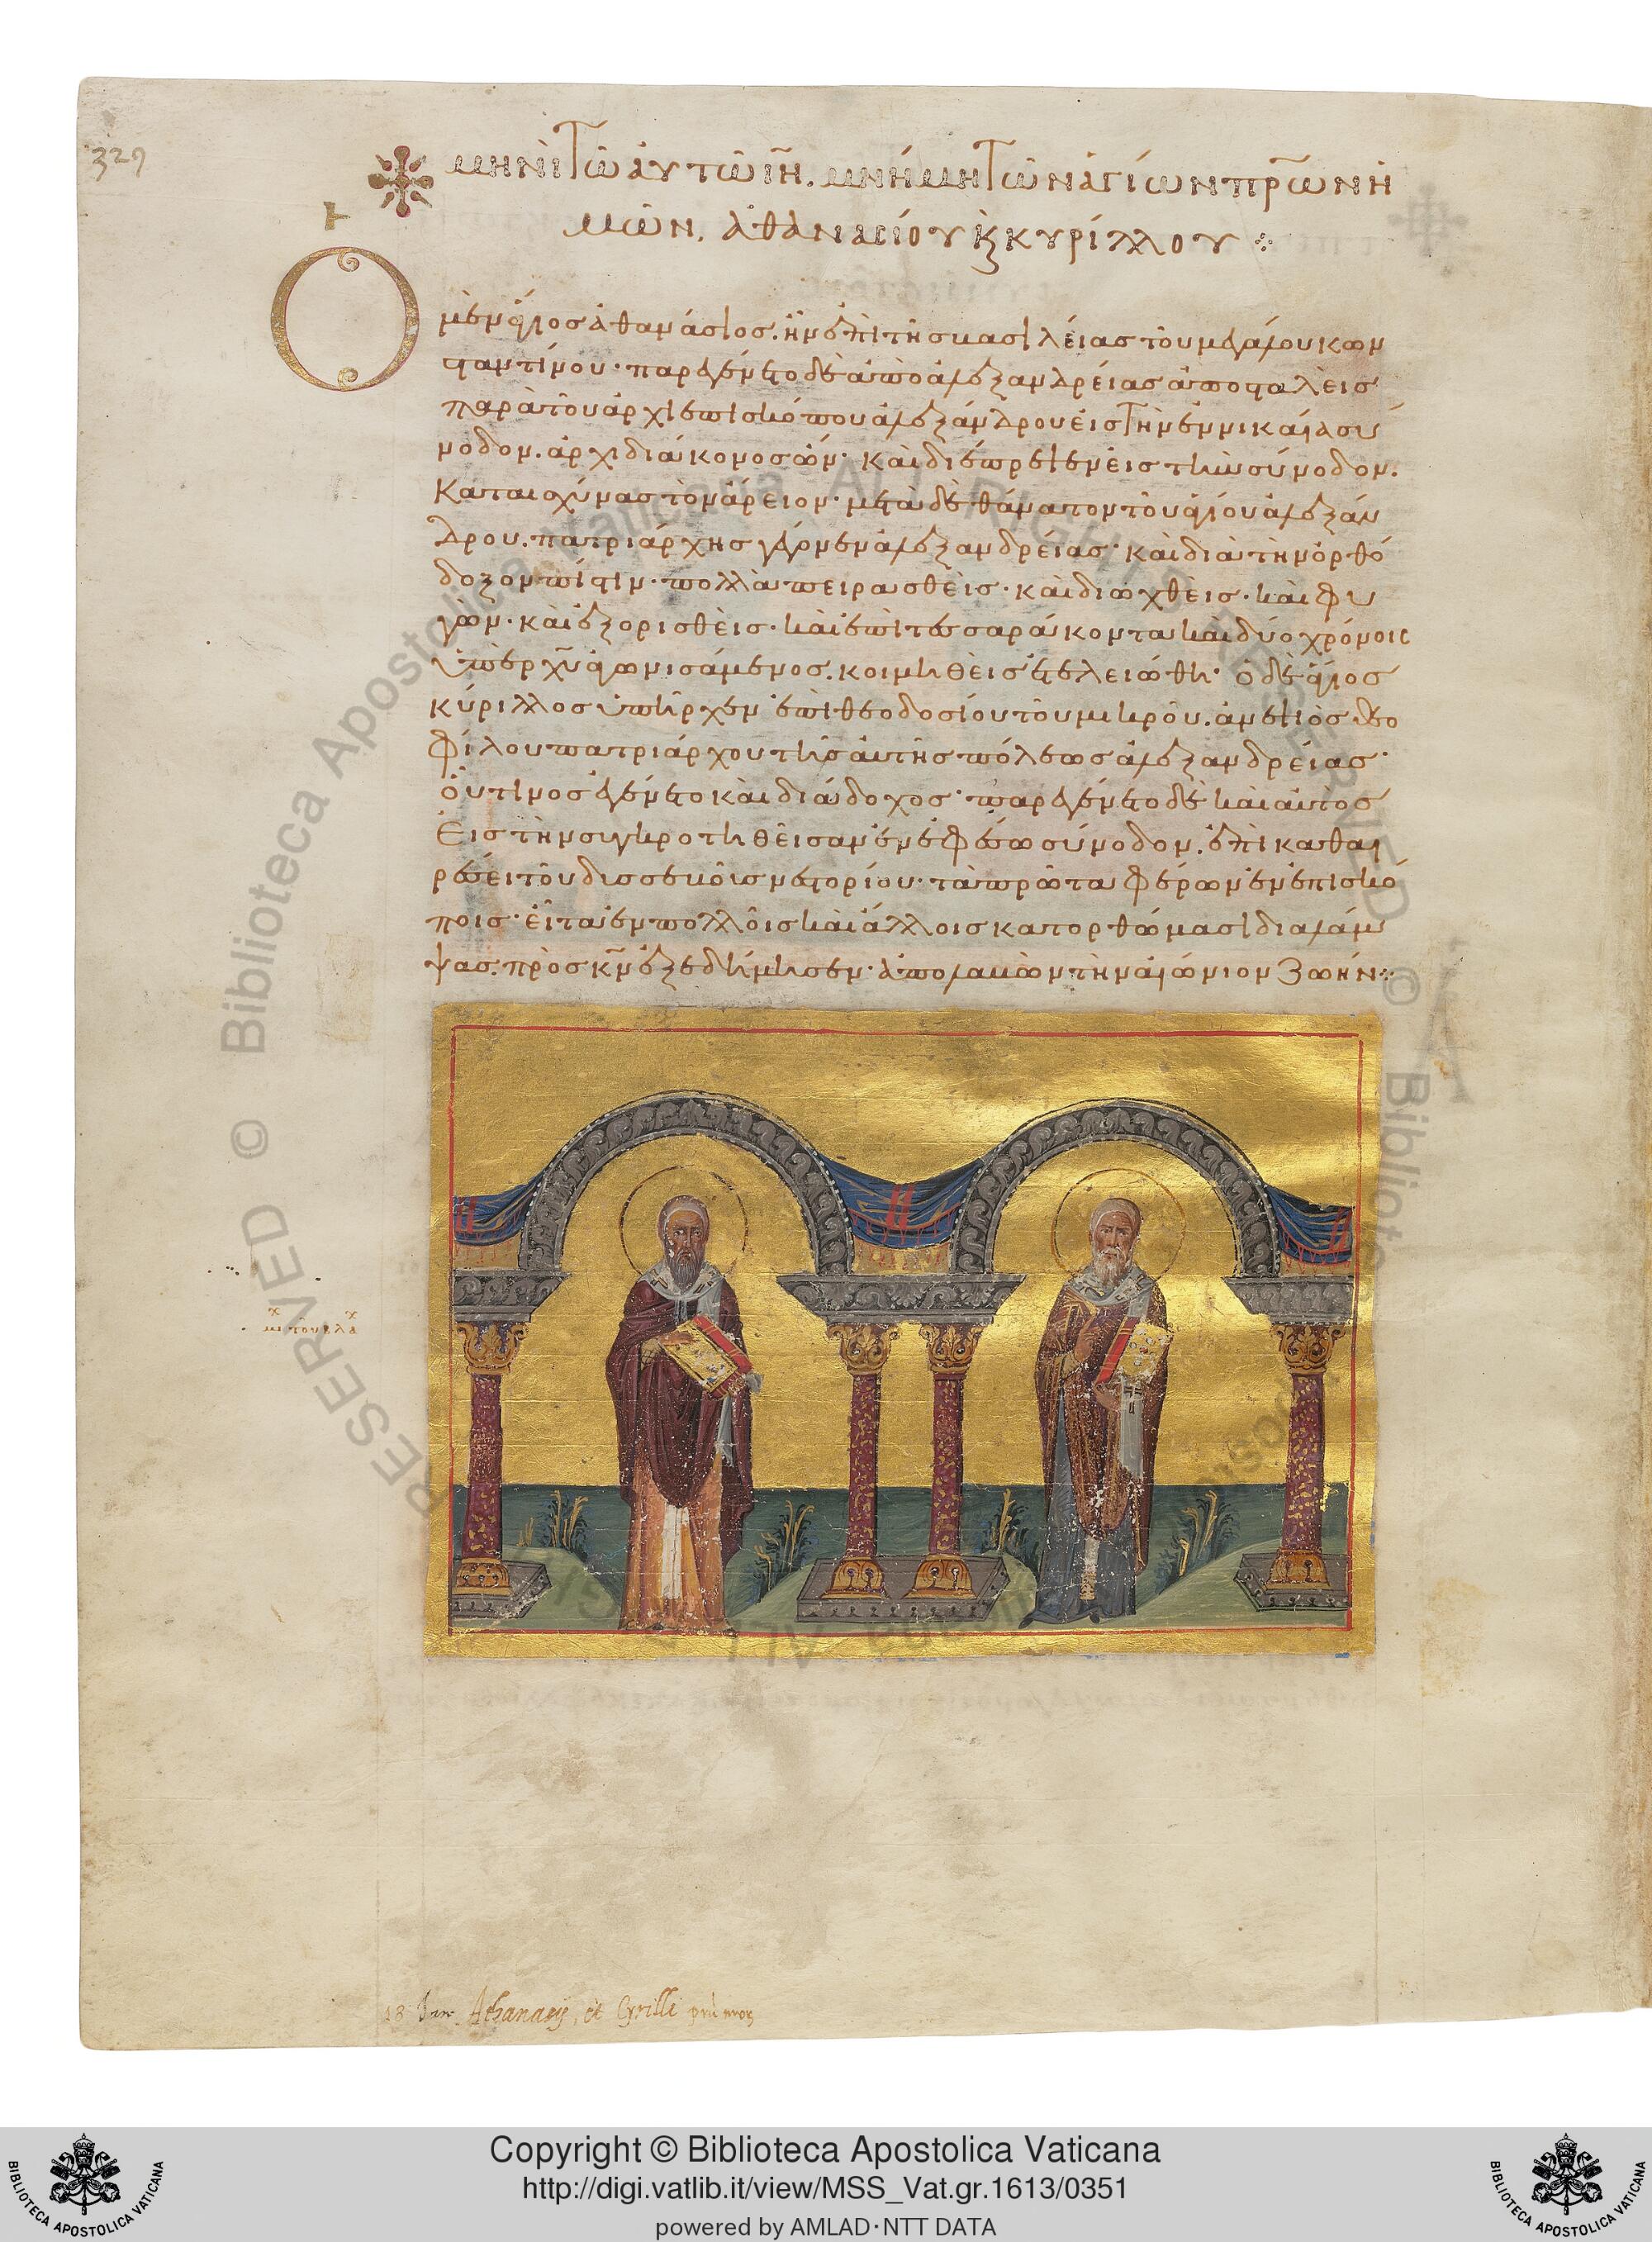 329
μηνὶ τῶ ἀυτῶ ιη. μνήμη τῶν ἁγίων πρων ἡ
μῶν, ἀθανασίου κ κυρίλλου
Ὁ μὲν ἅγιος ἀθανάσιος. ἦν ἐπὶ τῆς βασιλείας τοῦ μεγάλου κων
σταντίνου· παρεγένετο δὲ ἀπὸ ἀλεξανδρείας ἀποσταλεὶς
παρὰ τοῦ ἀρχιεπισκόπου ἀλεξάνδρου εἰς τὴν ἐν νικαία σύ
νοδον. ἀρχιδιάκονος ὤν· καὶ διέπρεψεν εἰς τὴν σύνοδον.
καταισχύνας τὸν ἄρειον· μετὰ δὲ θάνατον τοῦ ἁγίου ἀλεξάν
δρου. πατριάρχης γέγονεν ἀλεξανδρείας· καὶ διὰ τὴν ὀρθό
δοξον πίστιν· πολλὰ πειρασθεὶς· καὶ διωχθεὶς· καὶ φυ
γὼν· καὶ ἐξορισθεὶς· καὶ ἐπὶ τεσσαράκοντα καὶ δύο χρόνοις
ὑπὲρ χυ ἀγωνισάμενος. κοιμηθεὶς ἐτελειώθη· ὁ δὲ ἅγιος
κύριλλος ὑπῆρχεν ἐπὶ θεοδοσίου τοῦ μικροῦ. ἀνεψιὸς θεο
φίλου πατριάρχου τῆς αὐτῆς πόλεως ἀλεξανδρείας·
οὗτινος ἐγένετο καὶ διάδοχος· παρεγένετο δὲ καὶ αὐτὸς
εἰς τὴν συγκροτηθεῖσαν ἐν ἐφέσω σύνοδον. ἐπὶ καθαι
ρέσει τοῦ δυσσεβοῦς νεστορίου· τὰ πρῶτα φέρων ἐν ἐπισκό
ποις· εἶτα ἐν πολλοῖς καὶ ἄλλοις κατορθώμασι διαλάμ
ψας. πρὸς κν ἐξεδήμησεν· ἀπολαβὼν τὴν αἰώνιον ζωήν
18 Jan. Athanasij, et Cyrilli
© Biblioteca Apostolica Vaticana ALL RIGHTS RESERVED © Biblioteca Apostolica Vaticana ALL RIGHTS RESERVED
Copyright © Biblioteca Apostolica Vaticana
http://digi.vatlib.it/view/MSS_Vat.gr.1613/0351
powered by AMLAD·NTT DATA
BIBLIOTECA APOSTOLICA VATICANA
BIBLIOTECA APOSTOLICA VATICANA